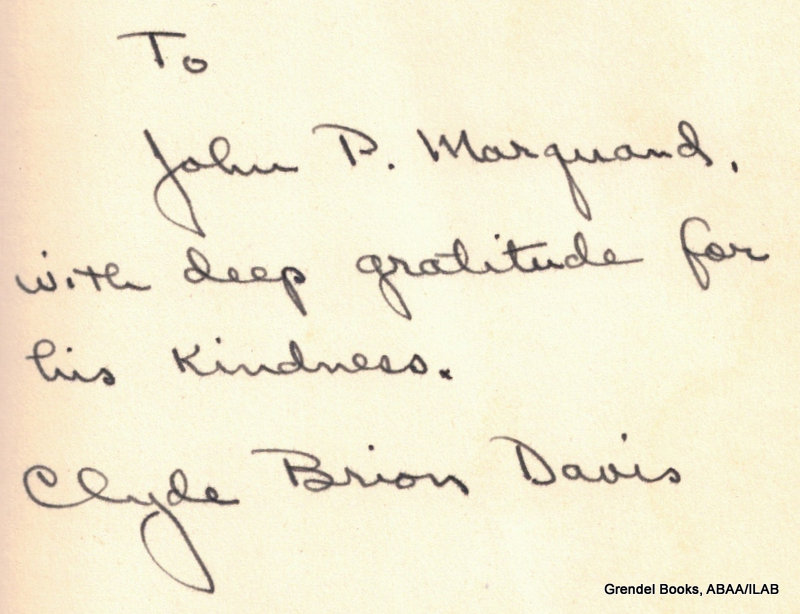 To
John P. Marquand,
with deep gratitude for
his kindness.
Clyde Brion Davis
Grendel Books, ABAA/ILAB